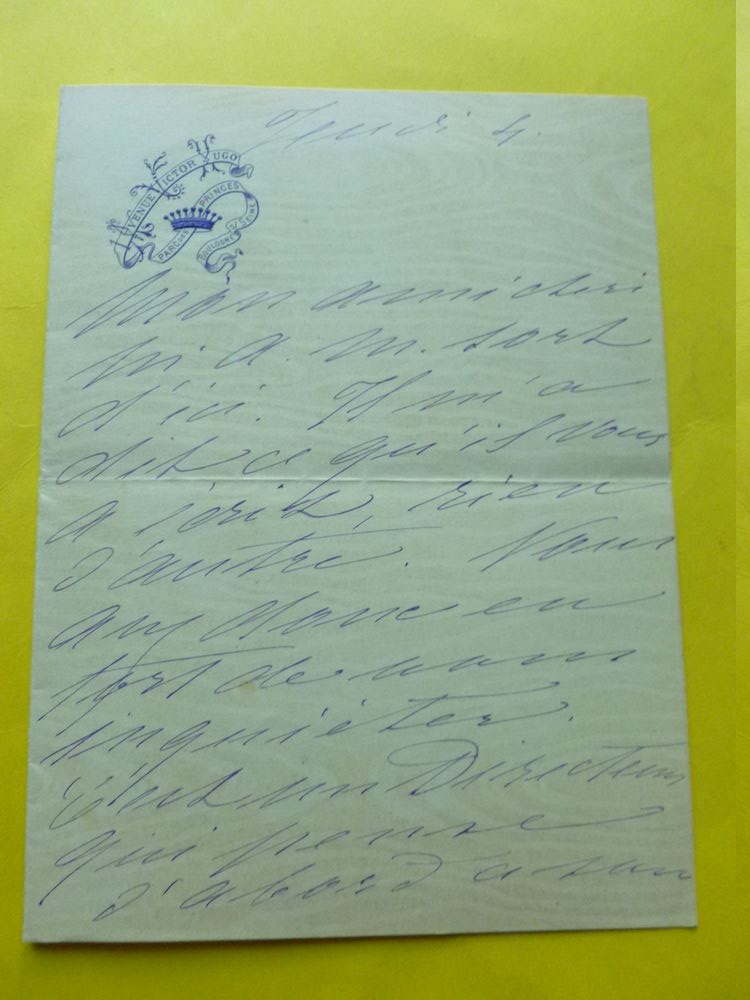 Jeudi 4.
AVENUE VICTOR HUGO
PARC DES PRINCES
BOULOGNE S/ SEINE
Mon ami chéri
A. M. sort
d'ici. Il m'a
dit ce qu'il vous
a écrit, rien
d'autre. Vous
avez donc eu
tort de vous
inquiéter.
C'est un Directeur
qui pense
d'abord a son